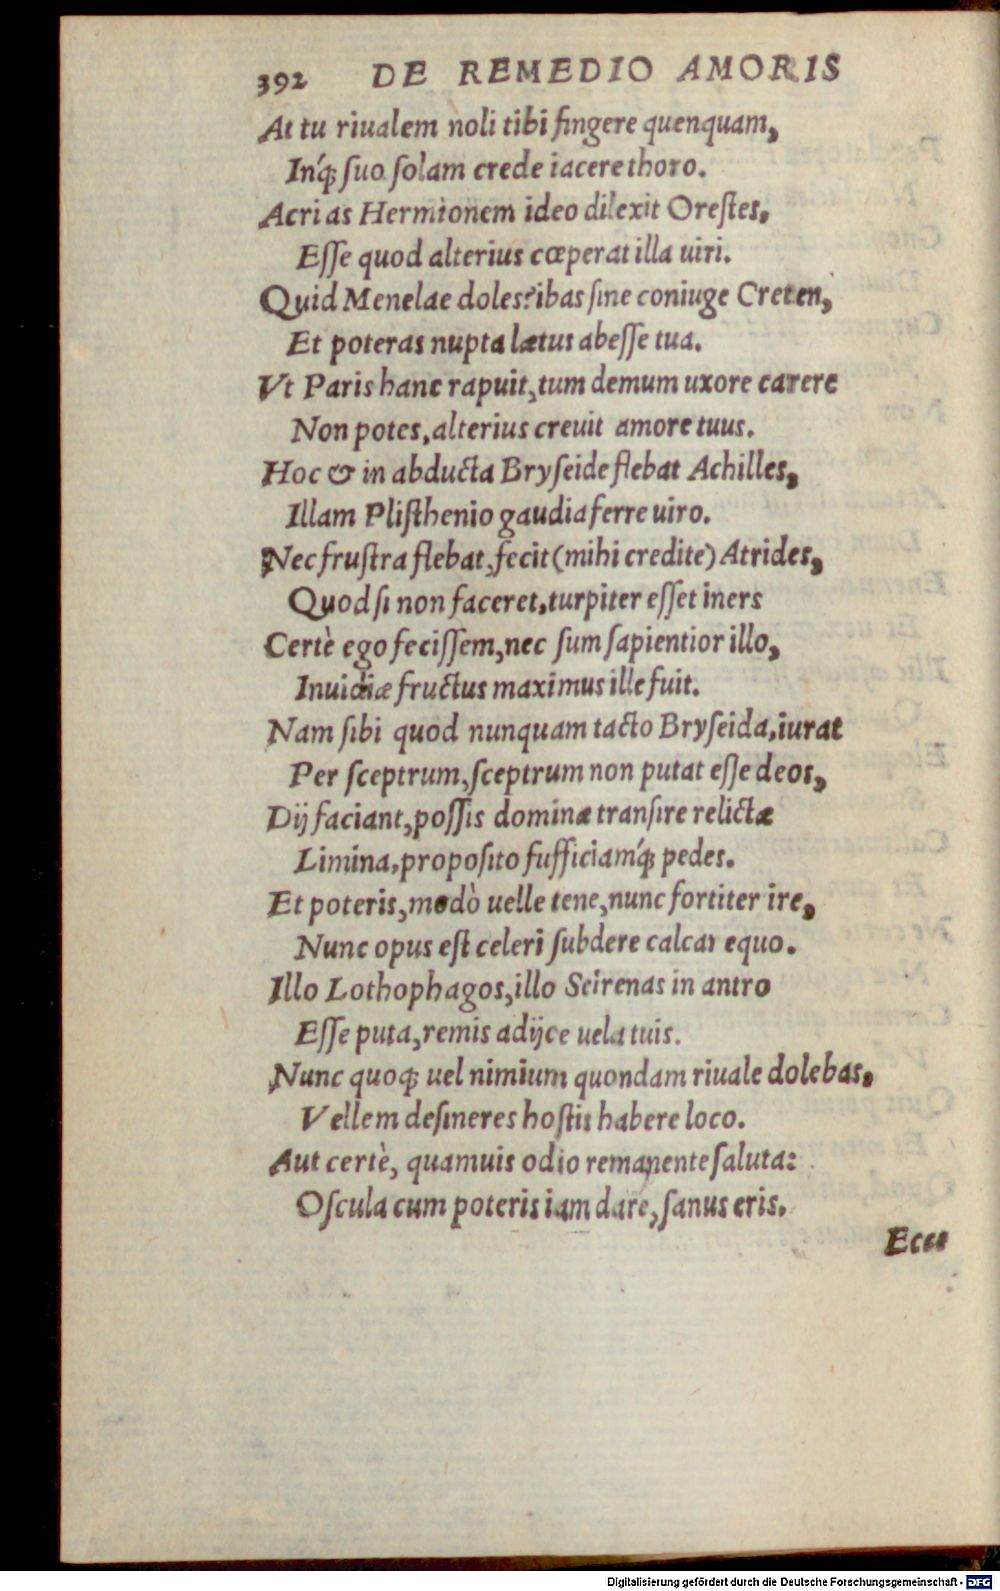 392 DE REMEDIO AMORIS
At tu riualem noli tibi fingere quenquam,
Inq́ꝫ ſuo ſolam crede iacere thoro.
Acri as Hermionem ideo dilexit Oreſtes,
Eſſe quod alterius cœperat illa uiri.
Quid Menelae doles? ibas ſine coniuge Creten,
Et poteras nupta lætus abeſſe tua.
Vt Paris hanc rapuit, tum demum uxore carere
Non potes, alterius creuit amore tuus.
Hoc & in abducta Bryſeide flebat Achilles,
Illam Pliſthenio gaudia ferre uiro.
Nec fruſtra flebat, fecit (mihi credite) Atrides,
Quod ſi non faceret, turpiter eſſet iners
Certè ego feciſſem, nec ſum ſapientior illo,
Inuidiæ fructus maximus ille fuit.
Nam ſibi quod nunquam tacto Bryſeida, iurat
Per ſceptrum, ſceptrum non putat eſſe deos,
Dij faciant, poſſis dominæ tranſire relictæ
Limina, propoſito ſufficiamq́ꝫ pedes.
Et poteris, modò uelle tene, nunc fortiter ire,
Nunc opus eſt celeri ſubdere calcar equo.
Illo Lothophagos, illo Seirenas in antro
Eſſe puta, remis adijce uela tuis.
Nunc quoqꝫ uel nimium quondam riuale dolebas,
Vellem deſineres hoſtis habere loco.
Aut certè, quamuis odio remanente ſaluta:
Oſcula cum poteris iam dare, ſanus eris.
Eccu
Digitalisierung gefördert durch die Deutsche Forschungsgemeinschaft - DFG